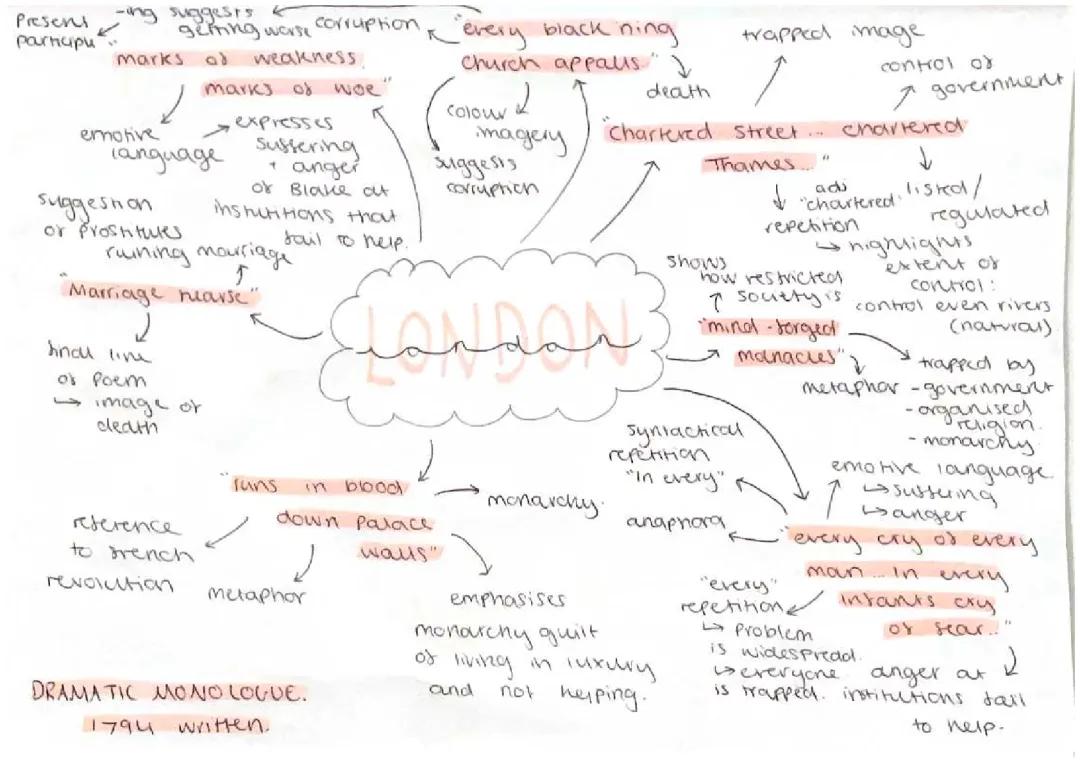 Present
participu
-ing suggests
getting worse
corruption
"every black ning
church appalls"
death
colour
imagery
suggests
corruption
"marks of weakness,
marks of woe"
emotive
language
expresses
suffering
+ anger
of Blake at
institutions that
fail to help.
trapped image
control of
government
"chartered street... chartered
Thames..."
adj
"chartered"
repetition
↳ highlights
extent of
control:
control even rivers
(natural)
listed/
regulated
suggestion
of prostitutes
ruining marriage
"Marriage hearse"
final line
of poem
→ image of
death
LONDON
London
shows
how restricted
society is
"mind-forged
manacles"
metaphor
trapped by
- government
- organised
religion.
- monarchy.
syntactical
repetition
"In every"
anaphora
emotive language
↳ suffering
↳ anger
"every cry of every
man... in every
infants cry
of fear..."
"every"
repetition
↳ problem
is widespread.
↳ everyone
is trapped.
anger at
institutions fail
to help.
"runs in blood
down palace
walls"
monarchy.
reference
to french
revolution
metaphor
emphasises
monarchy guilt
of living in luxury
and not helping.
DRAMATIC MONOLOGUE.
1794 written.